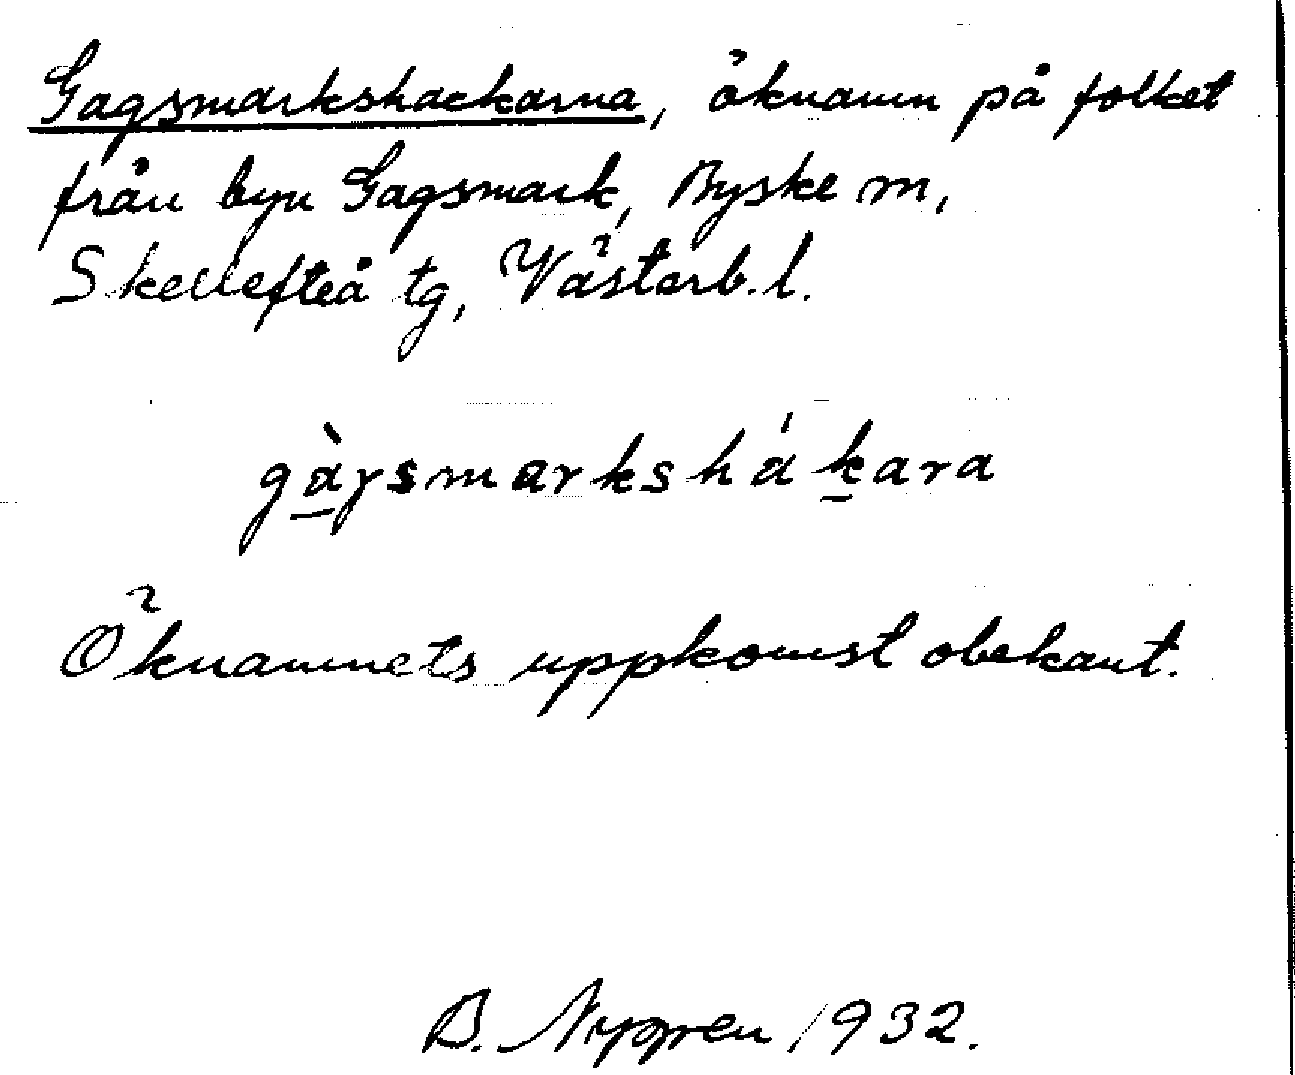 Gagsmarkshackarna, öknamn på folket
från byn Gagsmark, Byske m,
Skellefteå tg, Västerb. l.
gàγsmarkshákara
Öknamnets uppkomst obekant.
B. 1932.